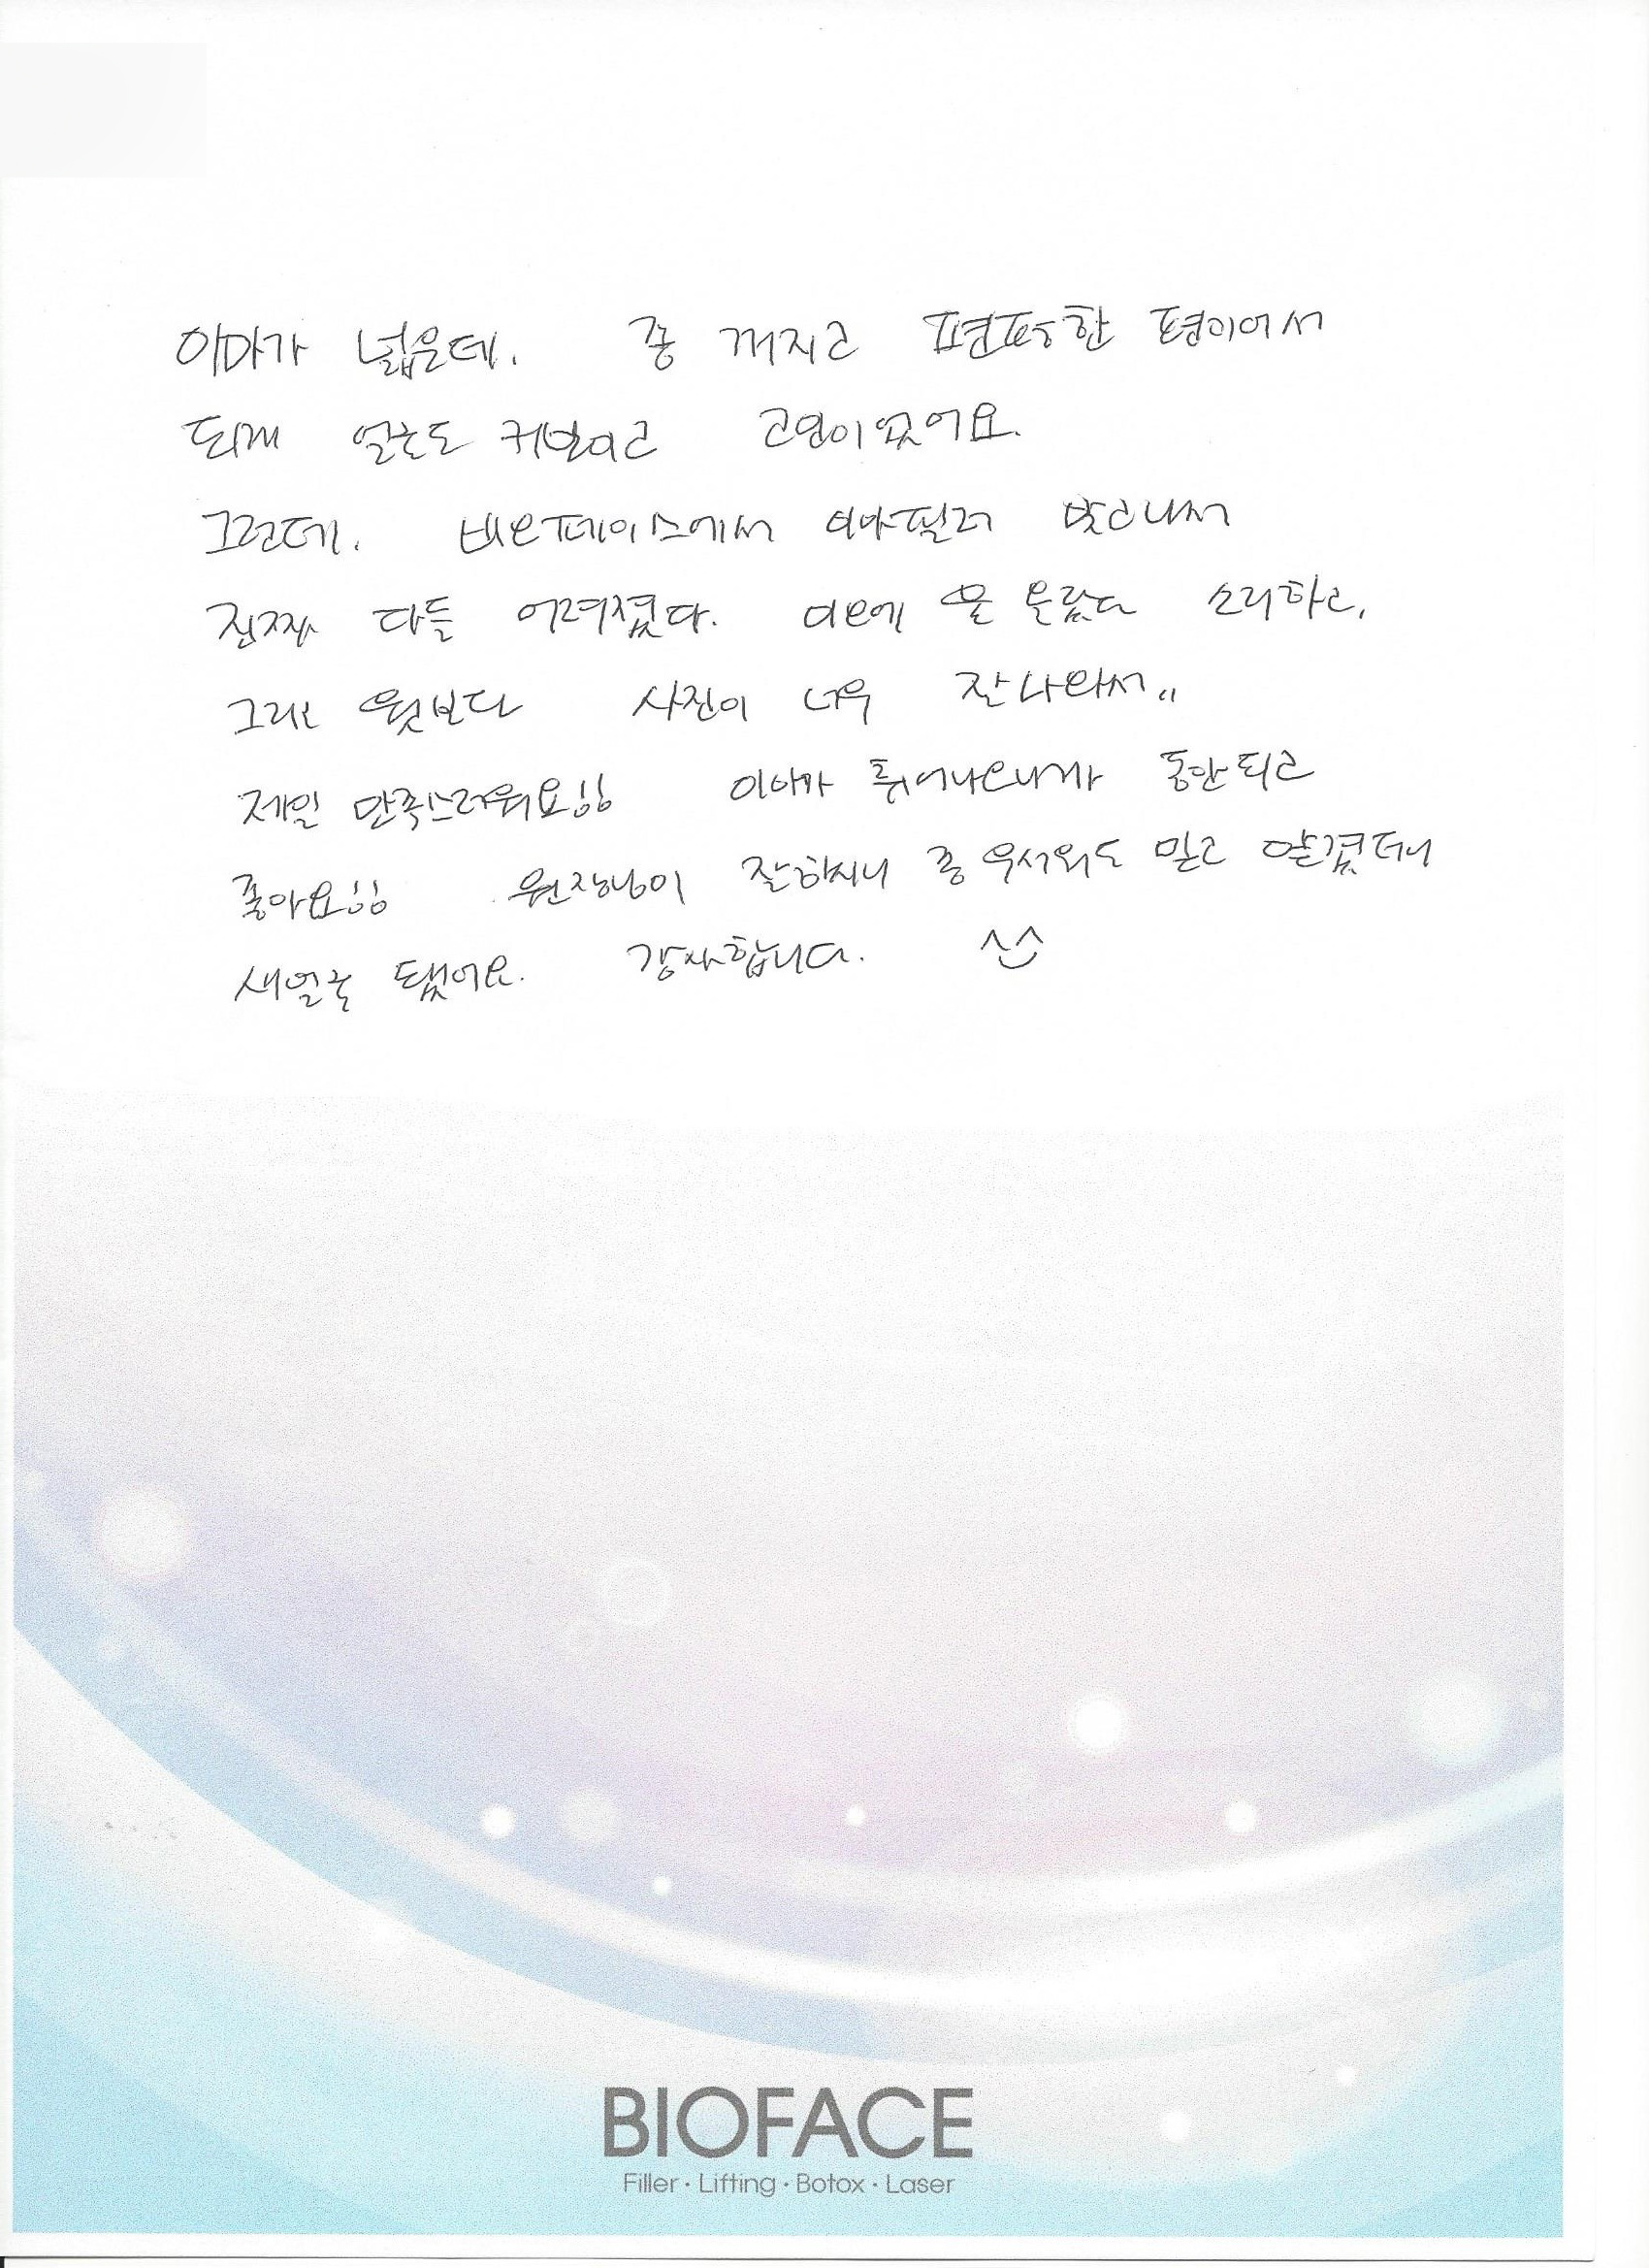 이마가 넓은데. 좀 꺼지고 편평한 편이어서
되게 얼굴도 커보이고 고민이었어요.
그런데. 바이오페이스에서 이마필러 맞고나서
진짜 다들 어려졌다. 이마에 뭘 넣었냐 소리하고,
그리고 뭣보다 사진이 너무 잘나와서..
제일 만족스러워요!! 이마가 튀어나오니까 동안되고
좋아요!! 원장님이 잘하시니 좀 무서워도 믿고 맡겼더니
새얼굴 됐어요. 감사합니다. ^_^
BIOFACE
Filler · Lifting · Botox · Laser